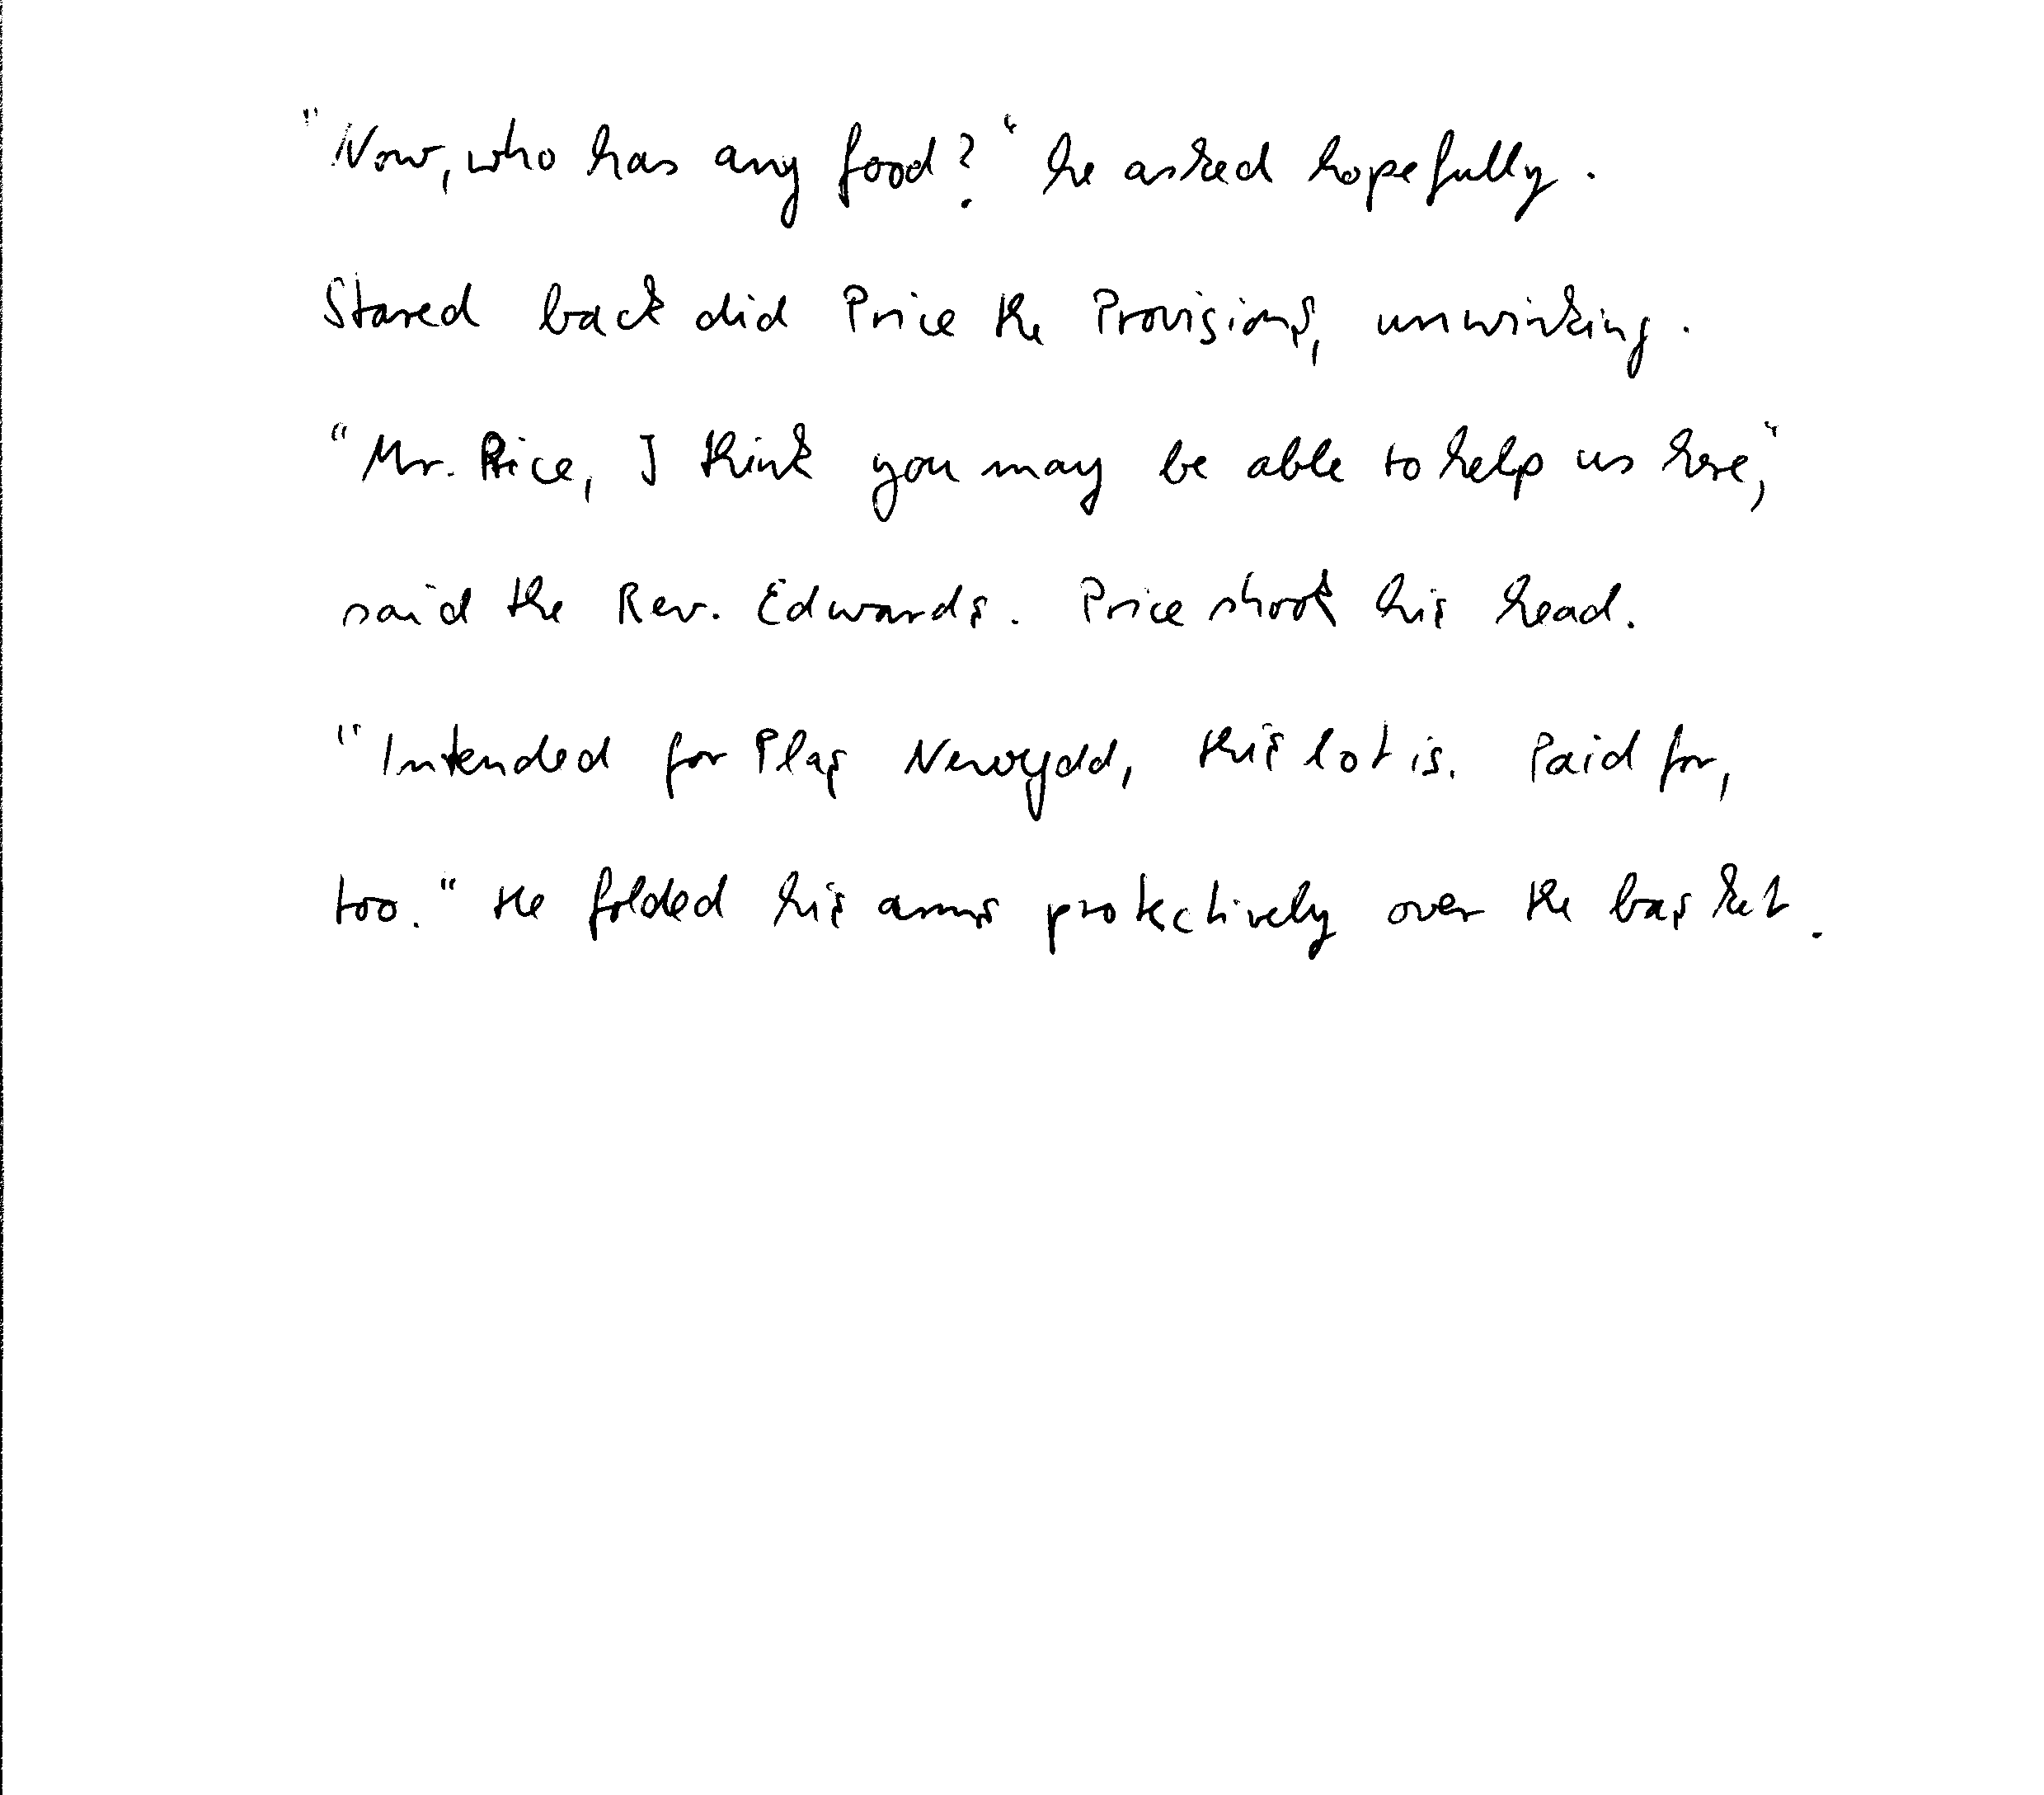 "Now, who has any food?" he asked hopefully.
Stared back did Price the Provisions, unwinking.
"Mr. Price, I think you may be able to help us here,"
said the Rev. Edwards. Price shook his head.
"Intended for Plas Newydd, this lot is. Paid for,
too." He folded his arms protectively over the basket.